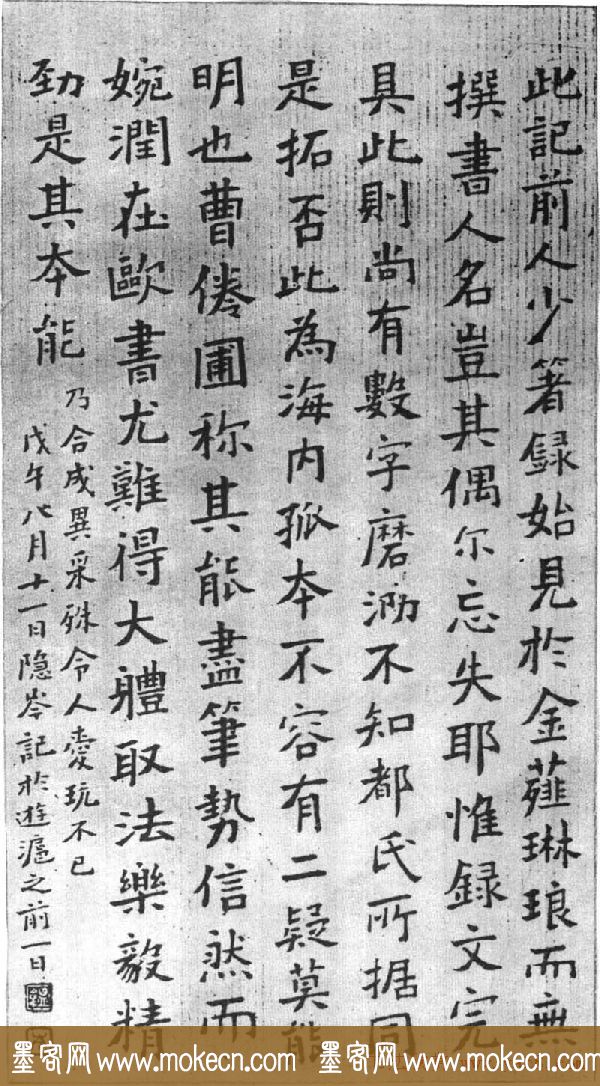 此記前人少著録始見於金薤琳琅而無
撰書人名豈其偶尔忘失耶惟録文完
具此則尚有數字磨泐不知都氏所据同
是拓否此為海内孤本不容有二疑莫能
明也曹倦圃称其能盡筆勢信然而
婉潤在歐書尤難得大體取法樂毅精
劲是其本能
乃合成異采殊令人愛玩不已
戊午八月十一日隐岑記於遊滬之前一日
墨客网 www.mokecn.com 墨客网 www.mokecn.com